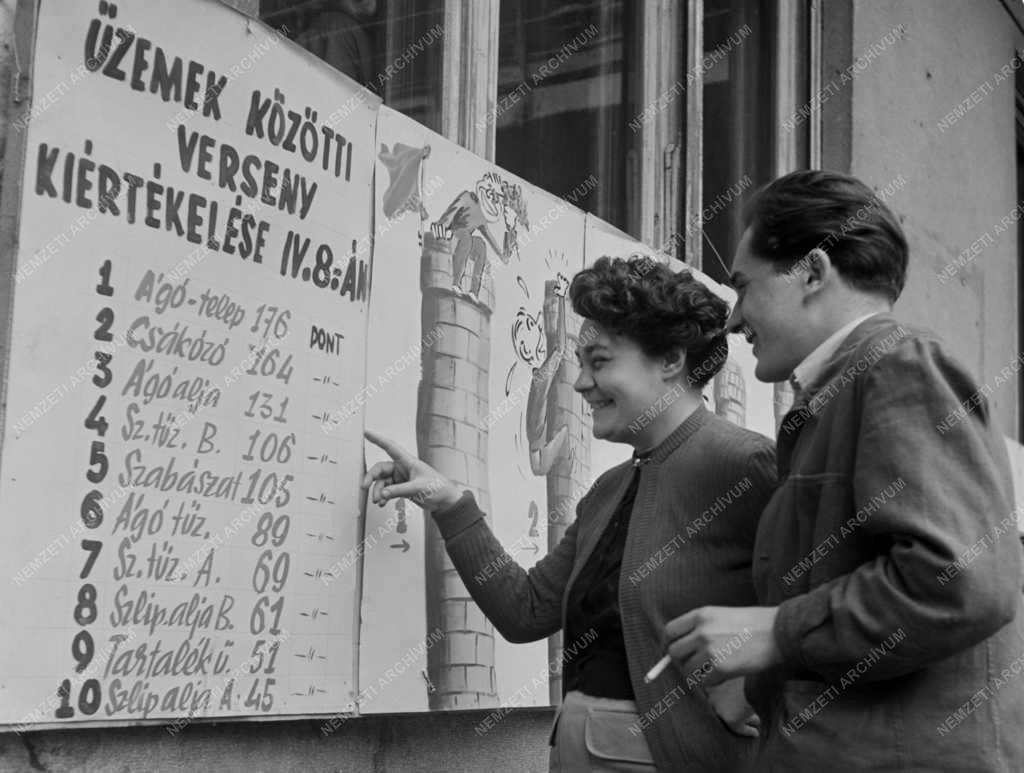 ÜZEMEK KÖZÖTTI
VERSENY
KIÉRTÉKELÉSE IV.8:ÁN
1 Ágó-telep 176 PONT
2 Csákózó 164 -"-
3 Ágó alja 131 -"-
4 Sz.tűz. B. 106 -"-
5 Szabászat 105 -"-
6 Ágó tűz. 89 -"-
7 Sz.tűz. A. 69 -"-
8 Szlip.alja B. 61 -"-
9 Tartalék ü. 51 -"-
10 Szlip alja A. 45 -"-
1 →
2 →
NEMZETI ARCHÍVUM